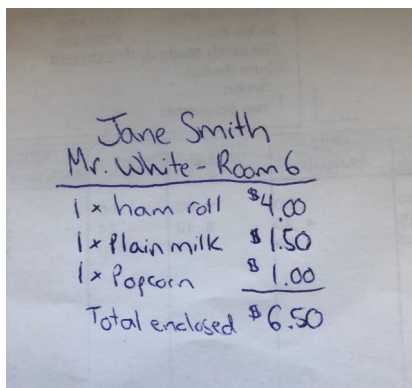 Jane Smith
Mr. White - Room 6
1 x ham roll $4.00
1 x Plain milk $1.50
1 x Popcorn $1.00
Total enclosed $6.50